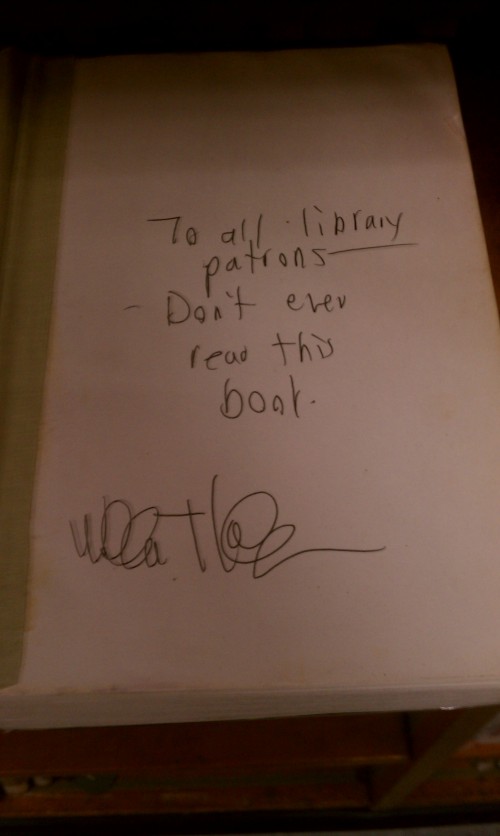 To all library
patrons
- Don't ever
read this
book.